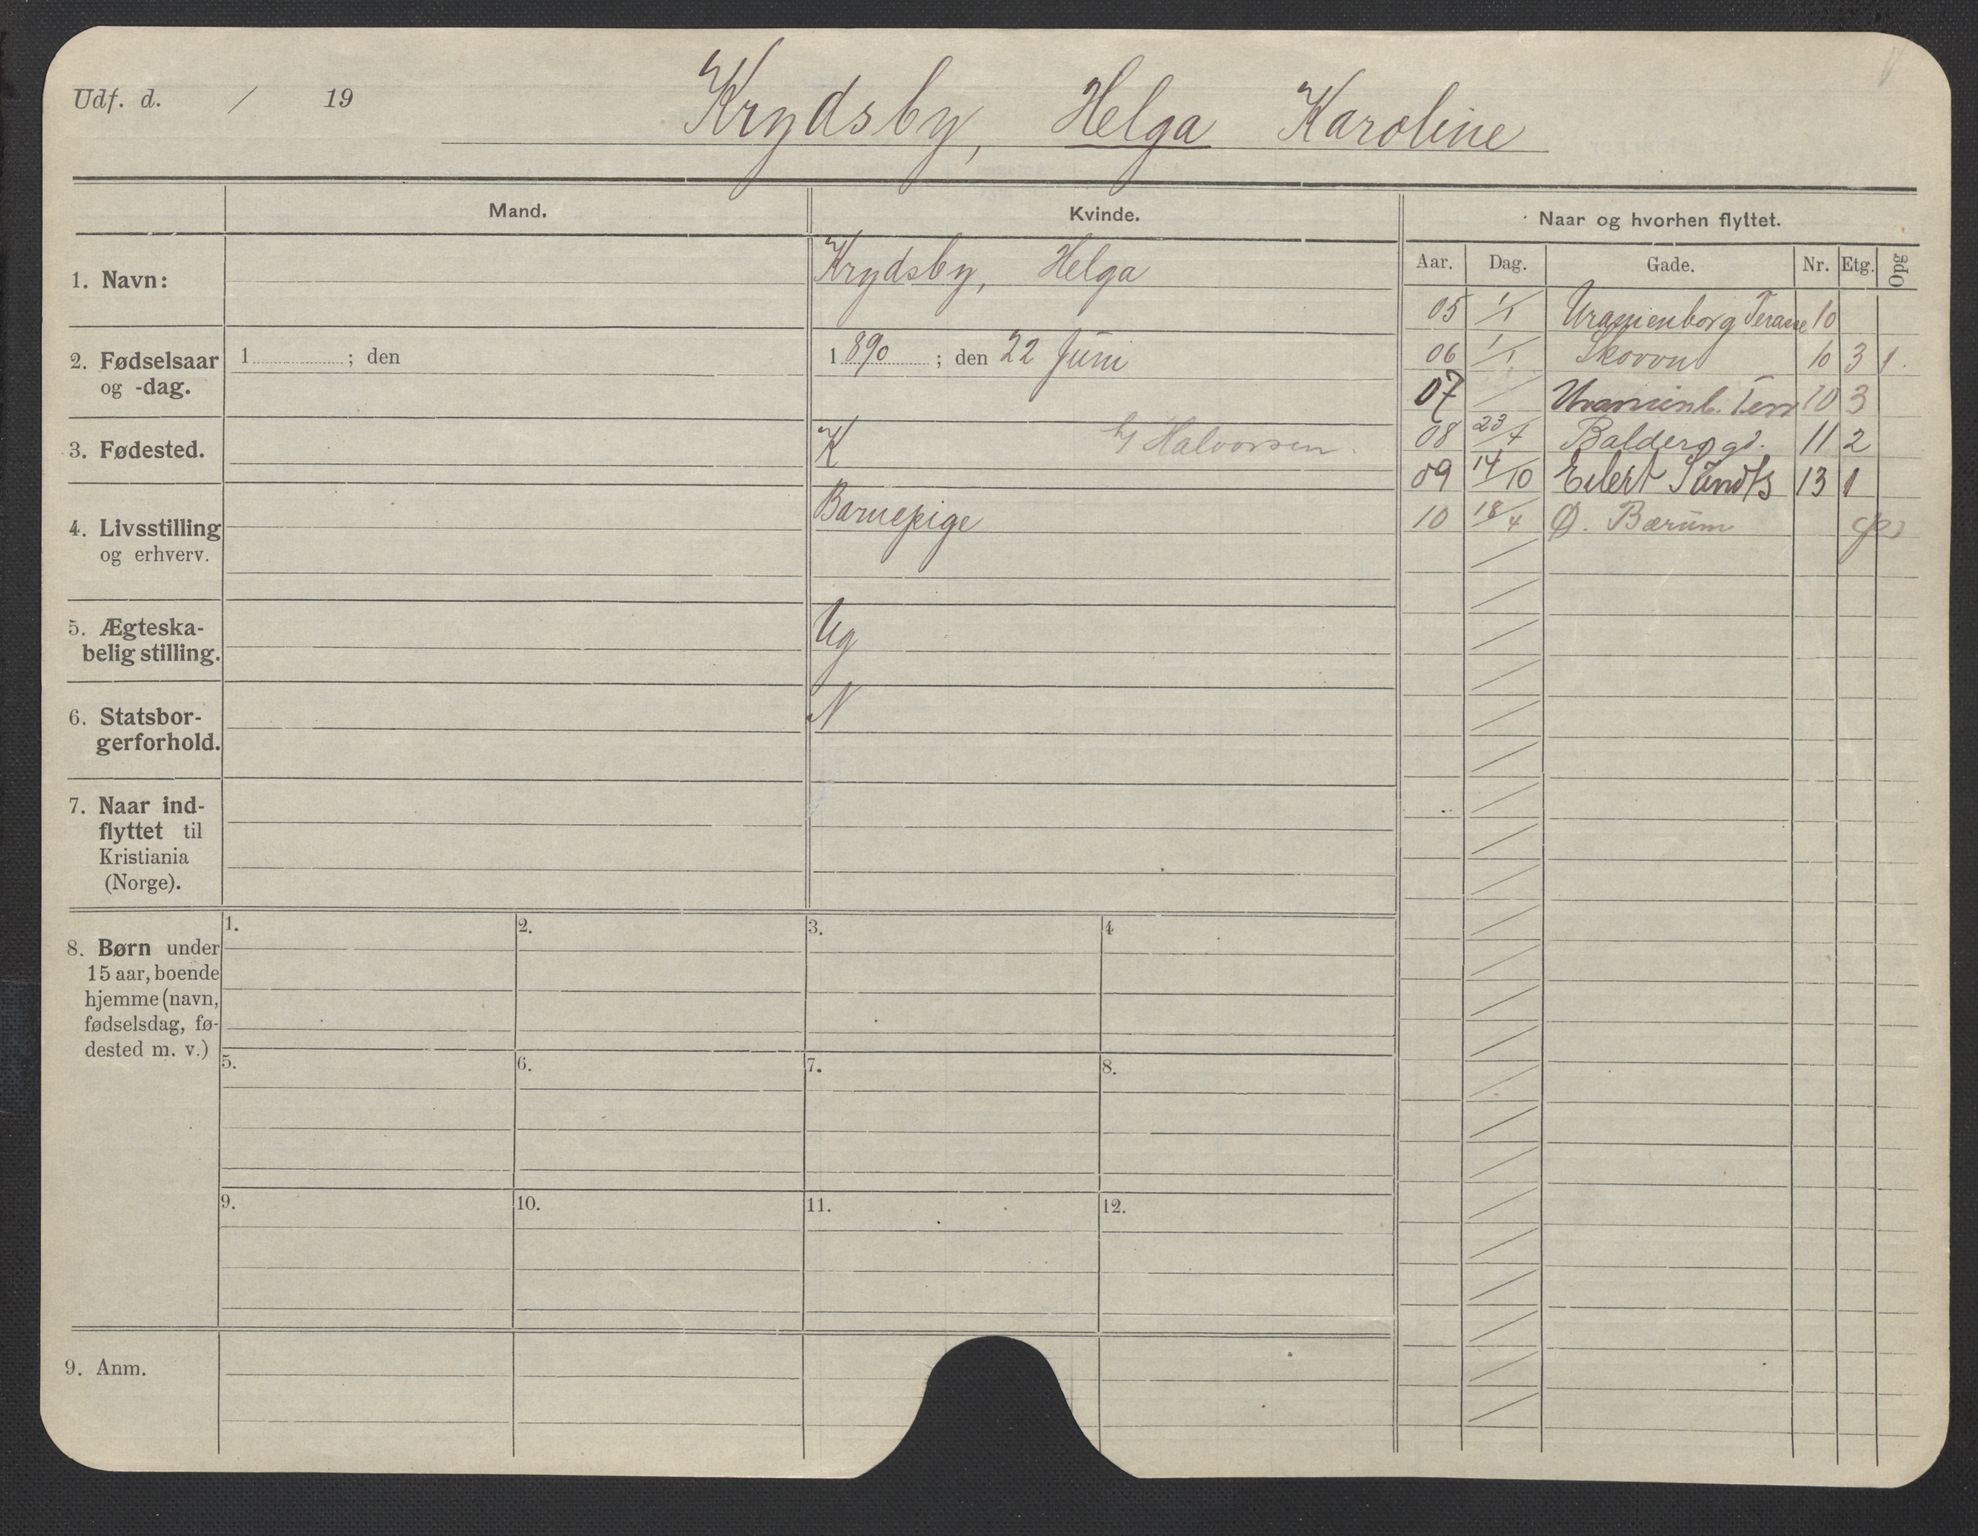 Udf. d. / 19
Krydsby, Helga Karoline
Mand. Kvinde. Naar og hvorhen flyttet.
Aar. Dag. Gade. Nr. Etg. Opg
1. Navn: Krydsby, Helga
05 1/1 Uranienborg Terasse 10
2. Fødselsaar 1 ; den 1890 ; den 22 Juni
og -dag.
06 1/1 Skovvn 10 3 1.
07 / Uranienb. Terr 10 3
3. Fødested. K h/ Halvorsen.
08 23/4 Baldersgd. 11 2
09 14/10 Eilert Sundts 13 1
4. Livsstilling Barnepige
og erhverv.
10 18/4 Ø. Bærum
5. Ægteska-
belig stilling. Ug
6. Statsbor-
gerforhold. N
7. Naar ind-
flyttet til
Kristiania
(Norge).
8. Børn under
15 aar, boende
hjemme (navn,
fødselsdag, fø-
dested m. v.)
1. 2. 3. 4
5. 6. 7. 8.
9. 10. 11. 12.
9. Anm.